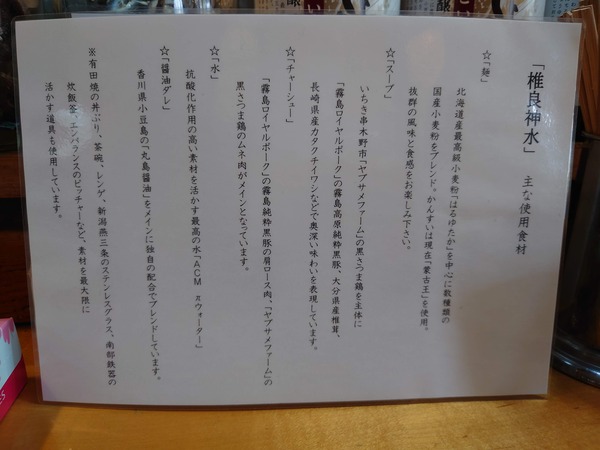 「椎良神水」 主な使用食材
☆「麺」
北海道産最高級小麦粉「はるゆたか」を中心に数種類の
国産小麦粉をブレンド。かんすいは現在「蒙古王」を使用。
抜群の風味と食感をお楽しみ下さい。
☆「スープ」
いちき串木野市「ヤブサメファーム」の黒さつま鶏を主体に
「霧島ロイヤルポーク」の霧島高原純粋黒豚、大分県産椎茸、
長崎県産カタクチイワシなどで奥深い味わいを表現しています。
☆「チャーシュー」
「霧島ロイヤルポーク」の霧島純粋黒豚の肩ロース肉、「ヤブサメファーム」の
黒さつま鶏のムネ肉がメインとなっています。
☆「水」
抗酸化作用の高い素材を活かす最高の水「ACM πウォーター」
☆「醤油ダレ」
香川県小豆島の「丸島醤油」をメインに独自の配合でブレンドしています。
※有田焼の丼ぶり、茶碗、レンゲ、新潟燕三条のステンレスグラス、南部鉄器の
炊飯釜、エンバランスのピッチャーなど、素材を最大限に
活かす道具も使用しています。